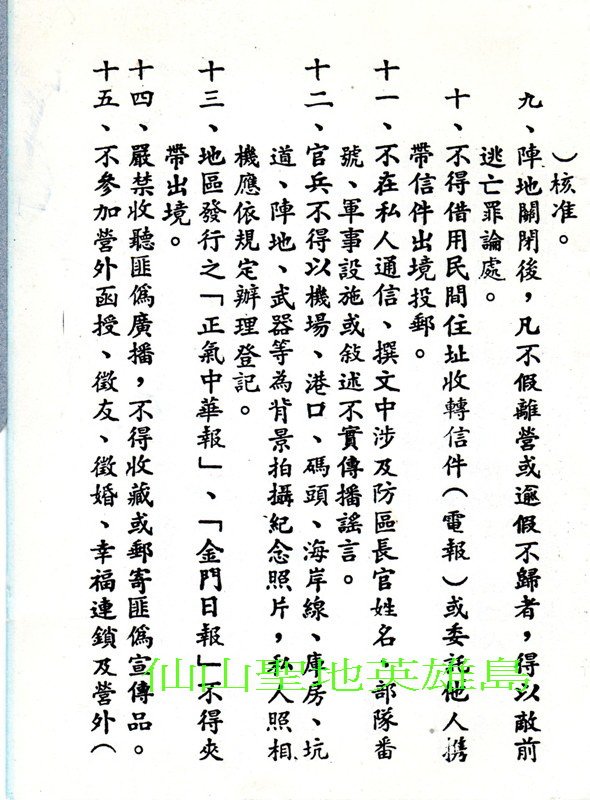 ）核准。
九、陣地關閉後，凡不假離營或逾假不歸者，得以敵前
逃亡罪論處。
十、不得借用民間住址收轉信件（電報）或委託他人携
帶信件出境投郵。
十一、不在私人通信、撰文中涉及防區長官姓名、部隊番
號、軍事設施或敍述不實傳播謠言。
十二、官兵不得以機場、港口、碼頭、海岸線、庫房、坑
道、陣地、武器等為背景拍攝紀念照片，私人照相
機應依規定辦理登記。
十三、地區發行之「正氣中華報」、「金門日報」不得夾
帶出境。
十四、嚴禁收聽匪偽廣播，不得收藏或郵寄匪偽宣傳品。
十五、不參加營外函授、徵友、徵婚、幸福連鎖及營外（
仙山聖地英雄島